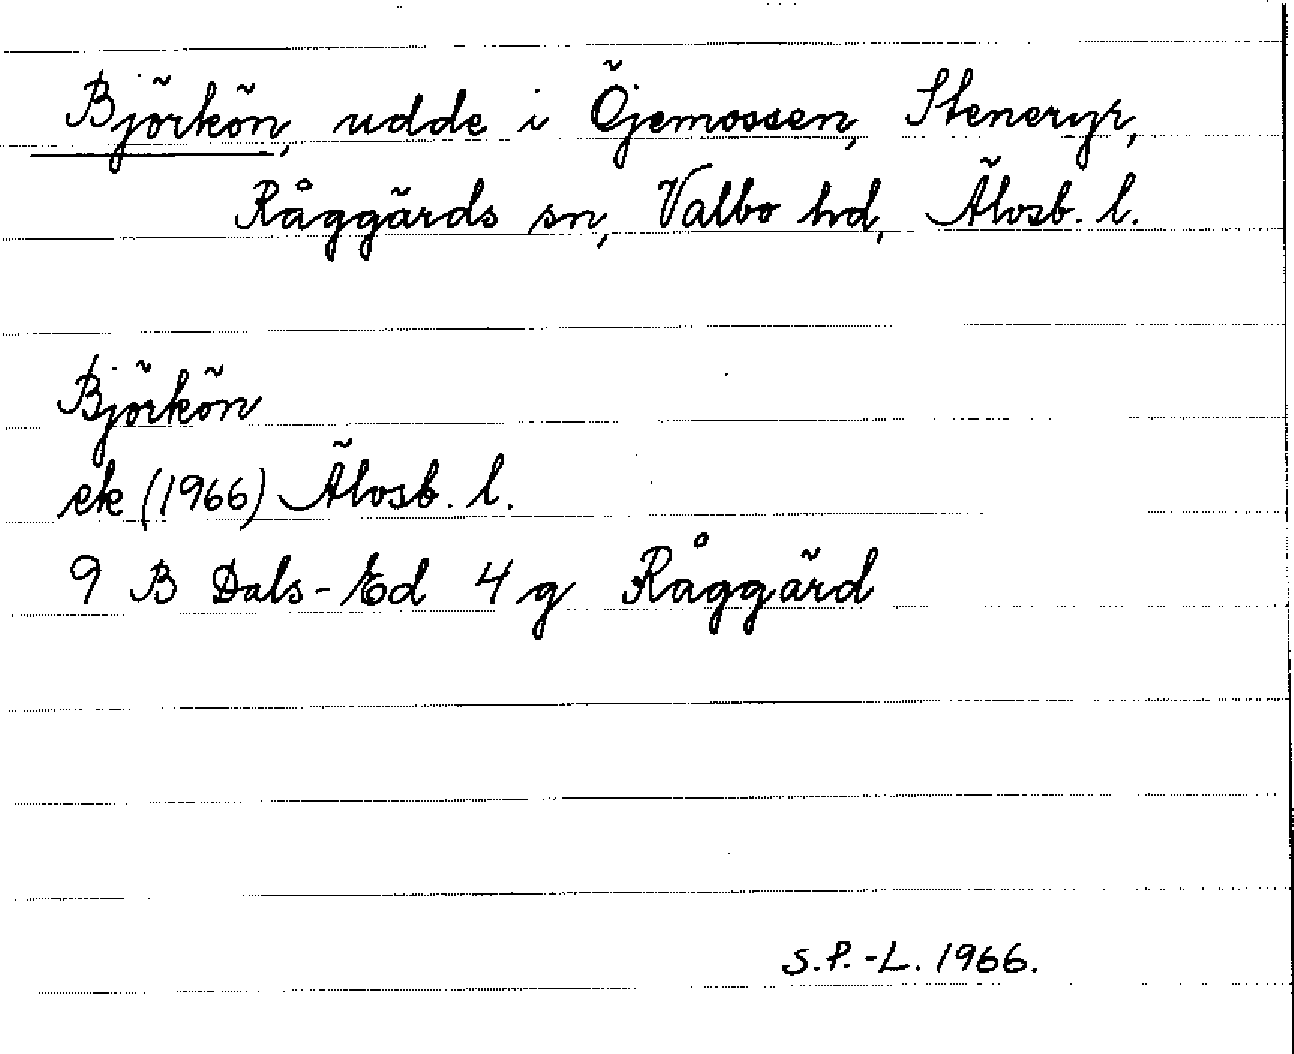 Björkön, udde i Öjemossen, Steneryr,
Råggärds sn, Valbo hd, Älvsb. l.
Björkön
ek (1966) Älvsb. l.
9 B Dals-Ed 4 g Råggärd
S.P.-L. 1966.